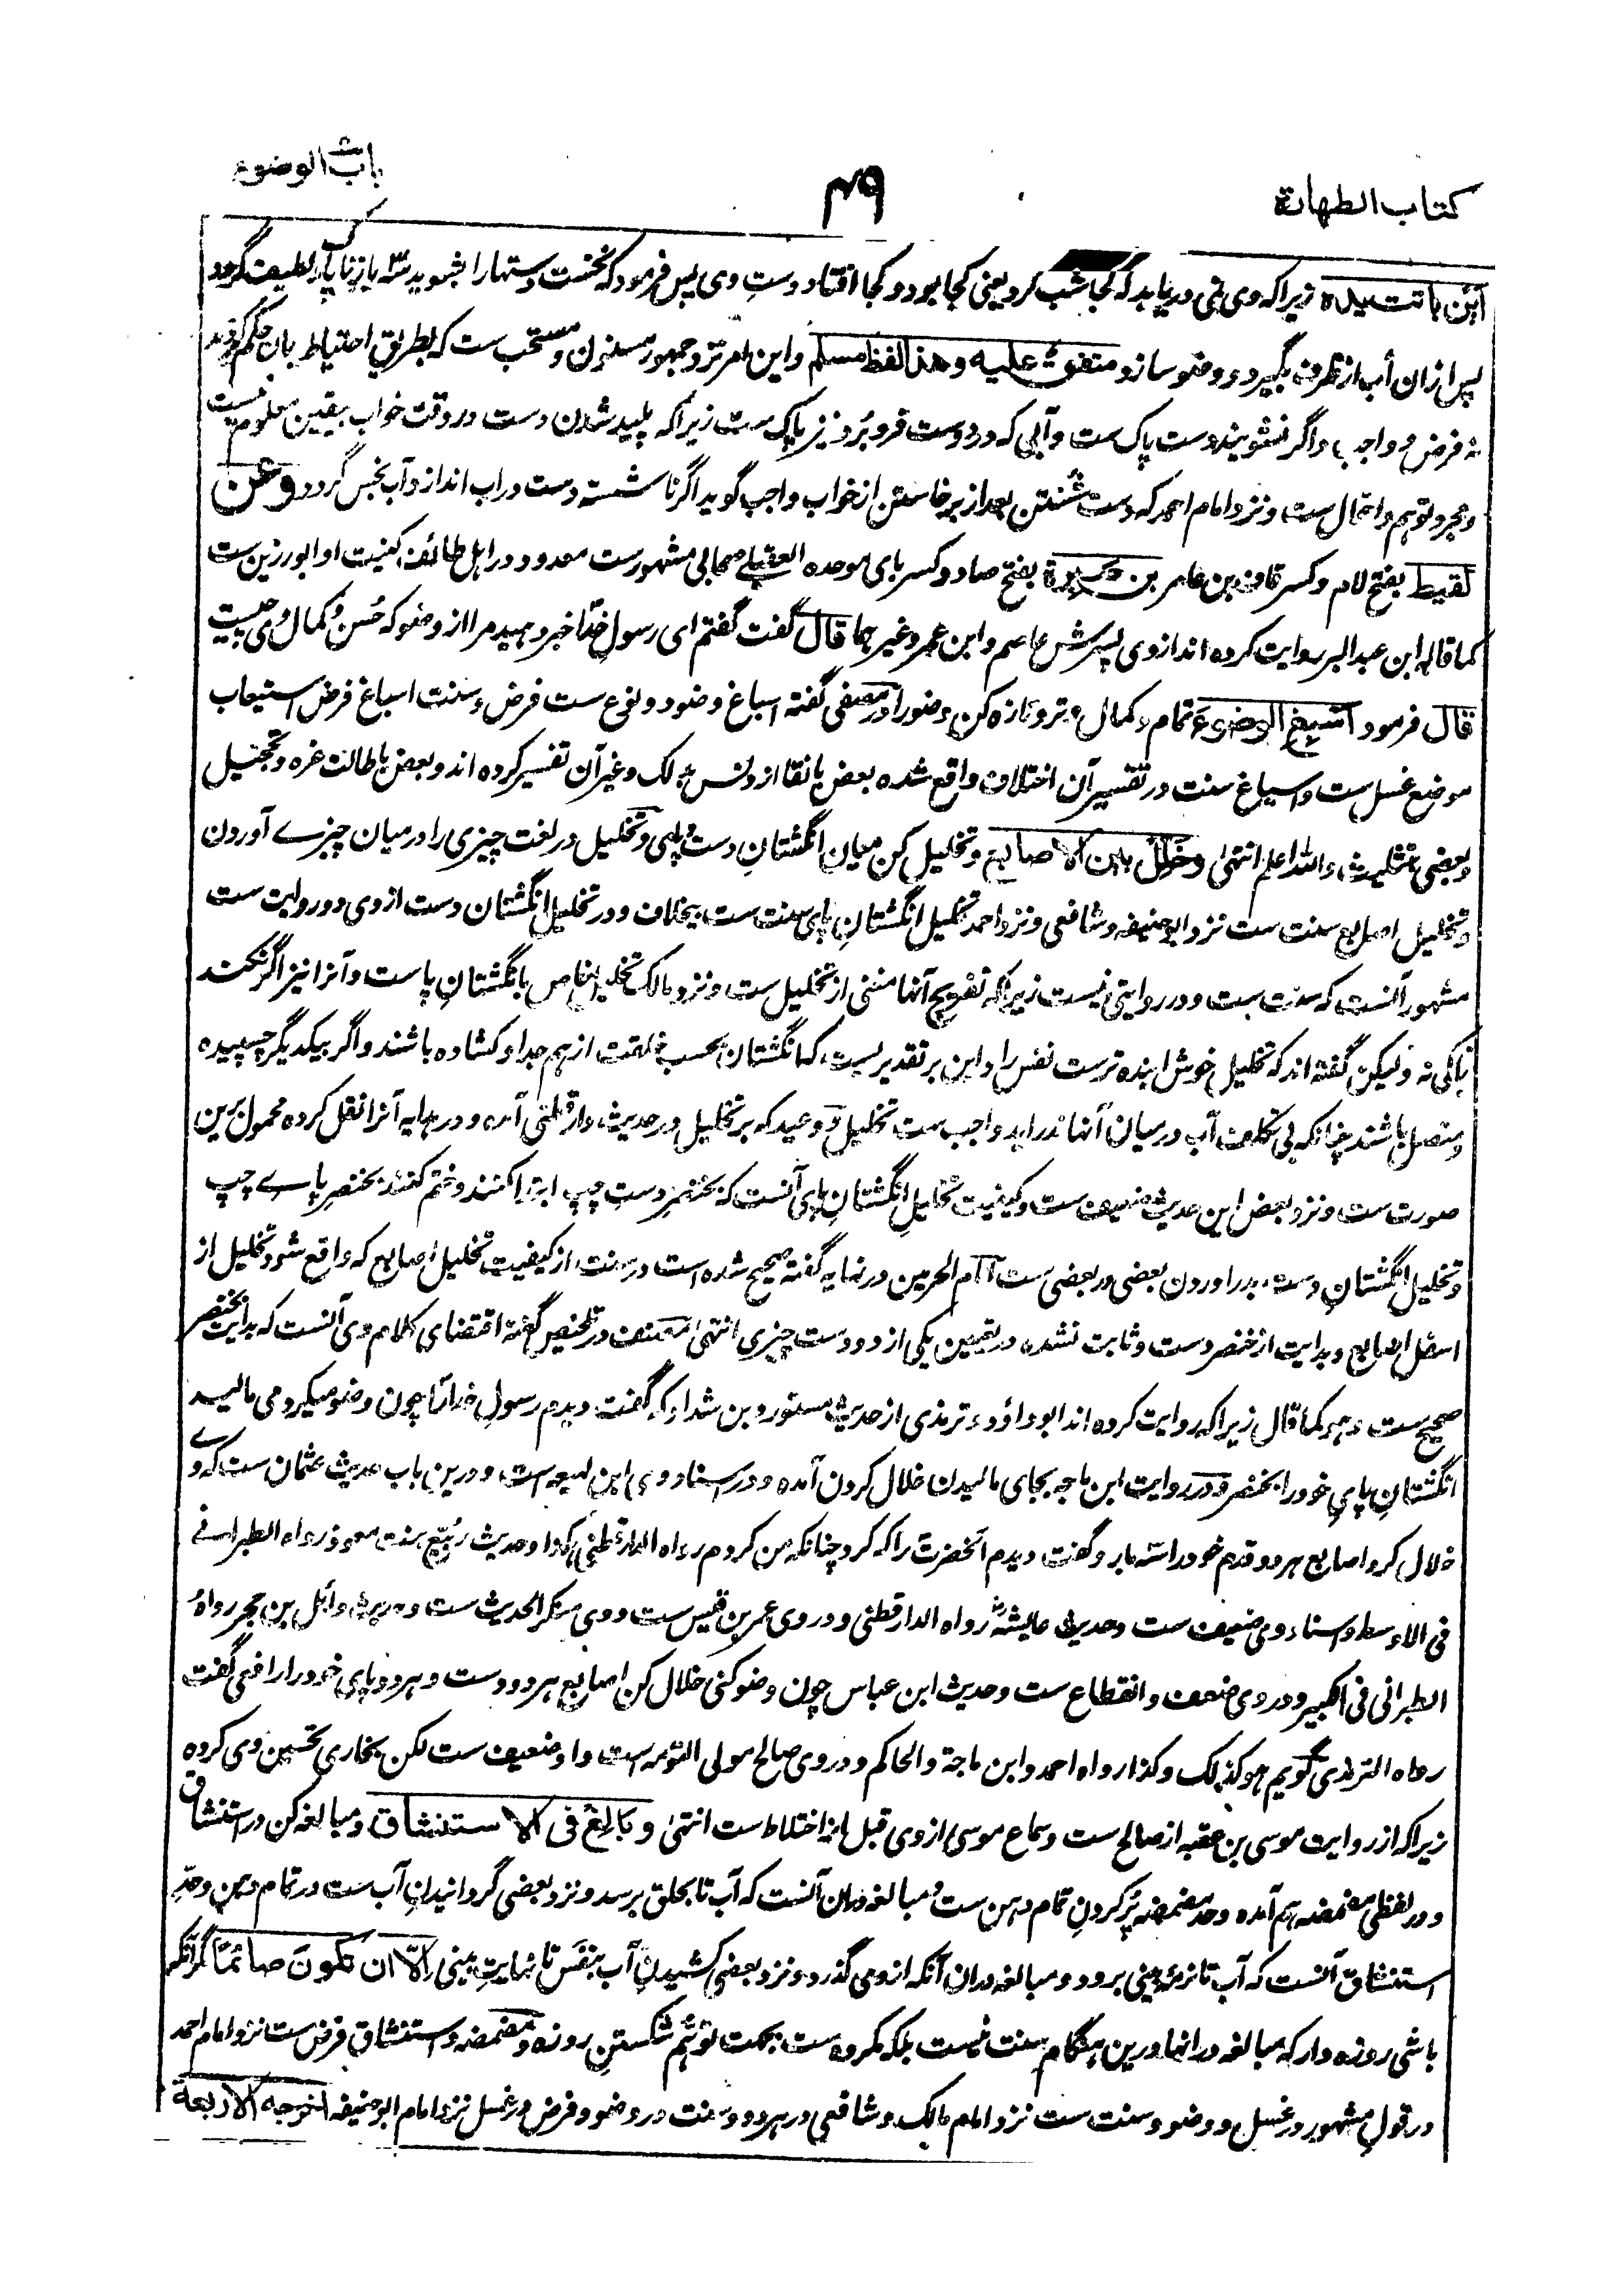 باب الوضوء
۴۹
کتاب الطهارة
این باتت یده زیرا که وی نمی دریابد که کجا شب کرد یعنی کجا بود و کجا افتاد دست وی پس فرمود که نخست دستها را بشوید سه بار
پس ازان آب از ظرف بگیرد و وضو سازد متفق علیه وهذا لفظ مسلم و این امر نزد جمهور مسنون و مستحب ست که بطریق احتیاط بان حکم کردند
نه فرض و واجب و اگر نشویند دست پاک ست و آبی که در و دست فرو برد نیز پاک ست زیرا که پلید شدن دست در وقت خواب بیقین معلوم نیست
و مجرد توهم و احتمال ست و نزد امام احمد که دست شستن بعد از برخاستن از خواب واجب گوید اگر ناشسته دست دراب اندازد آب نجس گردد وعن
لقیط بفتح لام و کسر قاف بن عامر بن صبرة بفتح صاد و کسر بای موحده العقیلی صحابی مشهورست معدود در اهل طائف کنیت او ابو رزین ست
کما قاله ابن عبد البر روایت کرده اند ازوی پسرش عاصم و ابن عمر و غیرهما قال گفت گفتم ای رسول خدا خبر دهید مرا از وضو که حسن و کمال وی چیست
قال فرمود اسبغ الوضوء تمام و کمال و تر و تازه کن وضو را در مصفی گفته اسباغ وضو دو نوع ست فرض و سنت اسباغ فرض استیعاب
موضع غسل ست و اسباغ سنت در تفسیر آن اختلاف واقع شده بعض بانقا از دنس و لک و غیر آن تفسیر کرده اند و بعض باطالت غره و تحجیل
و بعضی بتثلیث والله اعلم انتهی وخلل بین الاصابع و تخلیل کن میان انگشتان دست و پای و تخلیل در لغت چیزی را درمیان چیزے آوردن
و تخلیل اصابع سنت ست نزد ابو حنیفه و شافعی و نزد احمد تخلیل انگشتان پای سنت ست بیخلاف و در تخلیل انگشتان دست ازوی دو روایت ست
مشهور آنست که سنت ست و در روایتی نیست زیرا که تفریج آنها مغنی از تخلیل ست و نزد مالک تخلیل خاص بانگشتان پا ست و آنرا نیز اگر نکند
باکی نه ولیکن گفته اند که تخلیل خوش آینده ترست نفس را و این بر تقدیریست که انگشتان بحسب خلقت از هم جدا و کشاده باشند و اگر بیکدیگر چسپیده
و متصل باشند چنانکه بی تکلف آب درمیان آنها ندراید واجب ست تخلیل و وعید که بر تخلیل در حدیث دارقطنی آمده و در هدایه آنرا نقل کرده محمول برین
صورت ست و نزد بعض این حدیث ضعیف ست و کیفیت تخلیل انگشتان پای آنست که بخنصر دست چپ ابتدا کنند و ختم کنند بخنصر پاے چپ
و تخلیل انگشتان دست بدراوردن بعضی در بعضی ست امام الحرمین در نهایه گفته صحیح شده است در سنت از کیفیت تخلیل اصابع که واقع شود تخلیل از
اسفل اصابع و بدایت از خنصر دست و ثابت نشده در تعیین یکی از دو دست چیزی انتهی مصنف در تلخیص گفته اقتضای کلام وی آنست که بدایت بخنصر
صحیح ست وهو کما قال زیرا که روایت کرده اند ابو داؤد و ترمذی از حدیث مستورد بن شداد که گفت دیدم رسول خدا را چون وضو میکرد می مالید
انگشتان پای خود را بخنصر و در روایت ابن ماجه بجای مالیدن خلال کردن آمده و در اسناد وی ابن لهیعه است و درین باب حدیث عثمان ست که وے
خلال کرد اصابع هر دو قدم خود را سه بار و گفت دیدم آنحضرت را که کرد چنانکه من کردم رواه الدارقطنی هکذا و حدیث ربیع بنت معوذ رواه الطبرانے
فی الاوسط و اسناد وی ضعیف ست و حدیث عایشه رواه الدارقطنی و در وی عمر بن قیس ست و وی منکر الحدیث ست و حدیث وائل بن حجر رواه
الطبرانی فی الکبیر و در وی ضعف و انقطاع ست و حدیث ابن عباس چون وضو کنی خلال کن اصابع هر دو دست و هر دو پای خود را رافعی گفت
رواه الترمذی گویم هو کذلک و کذا رواه احمد وابن ماجة والحاکم و در وی صالح مولی التومه است و او ضعیف ست لکن بخاری تحسین وی کرده
زیرا که از روایت موسی بن عقبه از صالح ست و سماع موسی ازوی قبل از اختلاط ست انتهی وبالغ فی الاستنشاق و مبالغه کن در استنشاق
و در لفظی مضمضه هم آمده و حد مضمضه پر کردن تمام دهن ست و مبالغه دران آنست که آب تا بحلق برسد و نزد بعضی گردانیدن آب ست در تمام دهن و حد
استنشاق آنست که آب تا نرمه بینی برود و مبالغه دران آنکه ازوی گذرد و نزد بعضی کشیدن آب بنفس تا نهایت بینی الا ان تکون صائما مگر آنکه
باشی روزه دار که مبالغه درانها درین هنگام سنت نیست بلکه مکروه ست بجهت توهم شکستن روزه و مضمضه و استنشاق فرض ست نزد امام احمد
در قول مشهور در غسل و وضو و سنت ست نزد امام مالک و شافعی در هر دو و سنت در وضو و فرض در غسل نزد امام ابو حنیفه اخرجه الاربعة